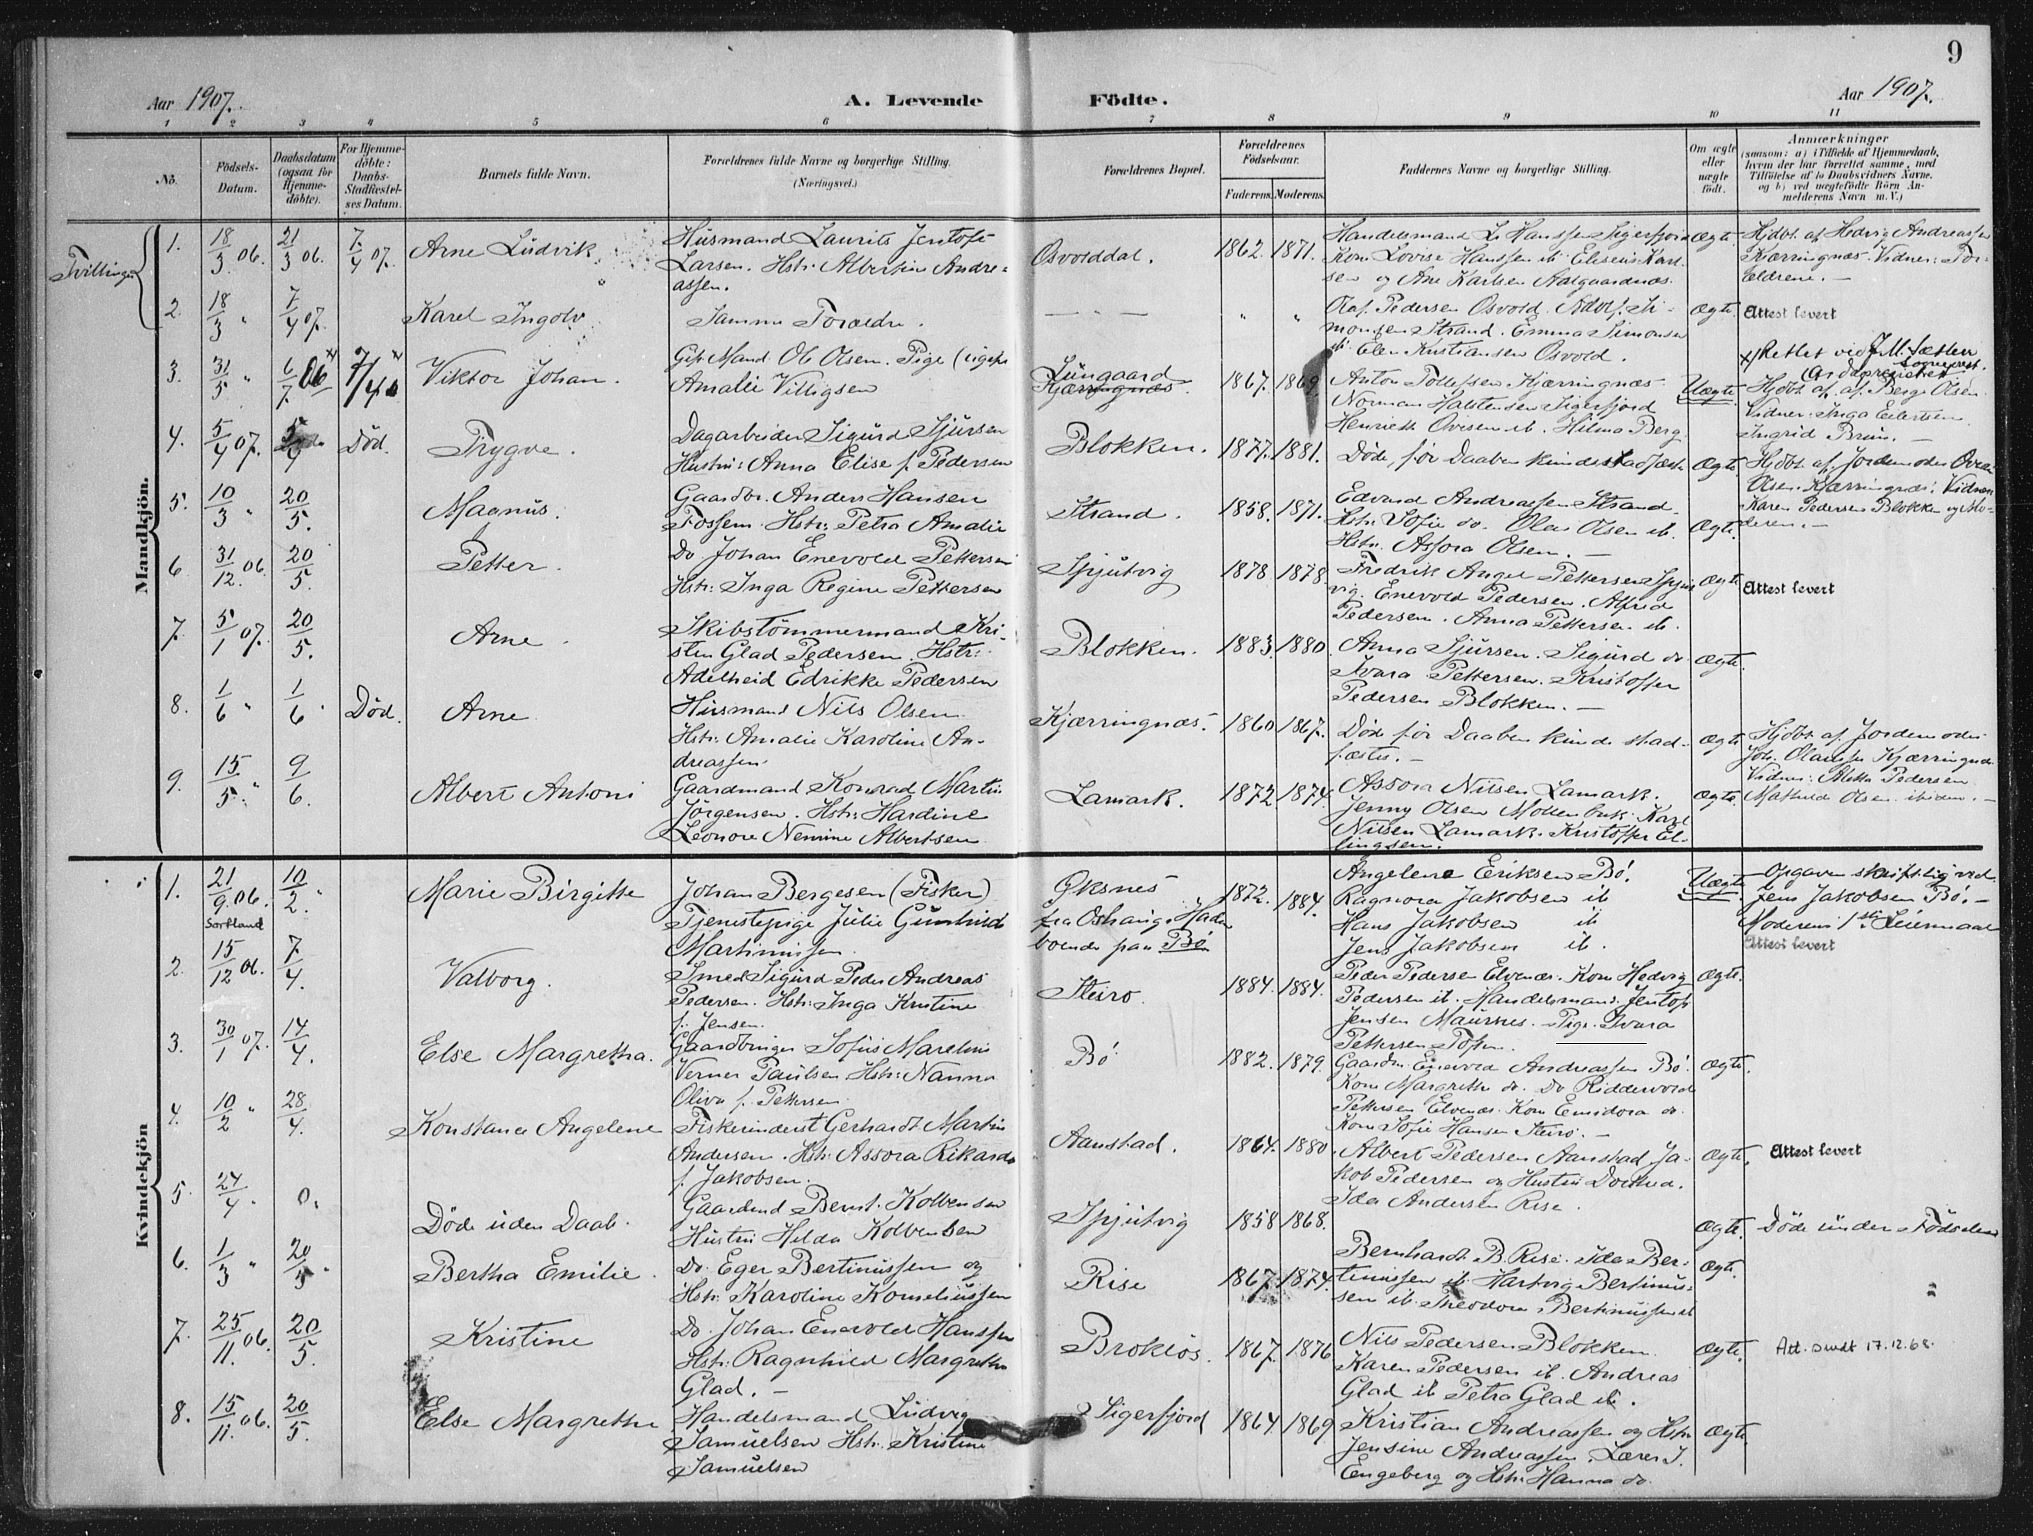 9
Aar 1907.
A. Levende
Födte.
Aar 1907.
1 2 3 4 5 6 7 8 9 10 11
No.
Födsels-Datum.
Daabsdatum (ogsaa for Hjemme-döbte).
For Hjemme-döbte: Daabs-Stadfæstelses Datum.
Barnets fulde Navn.
Forældrenes fulde Navne og borgerlige Stilling.
(Næringsvei.)
Forældrenes Bopæl.
Forældrenes Födselsaar.
Faderens. Moderens.
Faddernes Navne og borgerlige Stilling.
Om ægte eller uægte födt.
Anmærkninger
(saasom: a) i Tilfælde af Hjemmedaab, hvem der har forrettet samme, med Tilföielse af to Daabsvidners Navne, og b) ved uægtefödte Börn Anmelderens Navn m. V.)
Mandkjön.
Tvillinger
1. 18/3 06. 21/3 06. 7/4 07. Arne Ludvik. Husmand Laurits Jentoft
Larsen. Hstr: Albertine Andre-
assen.
Osvolddal. 1862. 1871. Handelsmand L. Hanssen Sigerfjord
Kone Lovise Hanssen ib. Eliseus Karl-
sen og Ane Karlsen Aalgaardnæs.
Ægte. Hjdbt. af Hedvig Andreassen
Kjærringnæs. Vidner: For-
ældrene. —
2. 18/3 " 7/4 07. Karel Ingolv Samme Forældre.
— " — " " Olaf Pedersen Osvold. Adolf Si-
monsen Strand. Emma Simonsen
ib. Elen Kristiansen Osvold.
Ægte. Attest levert
3. 31/5 " 6/7 06 7/4 Viktor Johan. Gift Mand Ole Olsen. Pige (ugift)
Amalie Villigsen
Lungaard
Kjærringnæs. 1867. 1869. Anton Tollefsen Kjærringnæs
Norman Halstensen Sigerfjord
Henriette Ovesen ib. Hilma Berg.
Uægte. x/ Rettet ved J. M. Sætter
Sogneprest.
Hjdbt. af Berge Olsen
Vidner: Inga Eilertsen
Ingrid Bruun. —
4. 5/4 07. 5/4 Död. Trygve. Dagarbeider Sigurd Sjursen
Hustru: Anna Elise f. Pedersen
Blokken. 1877. 1881. Døde, før Daaben kunde stadfæst.
Ægte. Hjdbt. af Jordemoder
Olsen. Kjærringnæs. Vidner
Karen Pedersen Blokken og Mo-
deren. —
5. 10/3 " 20/5. Magnus. Gaardbr. Anders Hansen
Fossem. Hstr: Petra Amalie
Strand. 1858. 1871. Edvard Andreassen Strand.
Hstr. Sofie do. Olea Olsen ib.
Hstr. Assora Olsen. —
Ægte.
6 31/12. 06. 20/5. Petter. Do Johan Enevold Pettersen
Hstr: Inga Regine Pettersen
Spjutvig 1878. 1878. Fredrik Angel Pettersen Spjut-
vig. Enevold Pedersen. Alfred
Pedersen. Anna Pettersen ib.
Ægte. Attest levert
7. 5/1 07. 20/5. Arne. Skibstømmermand Kri-
sten Glad Pedersen. Hstr:
Adelheid Edrikke Pedersen
Blokken. 1883. 1880. Anna Sjursen. Sigurd do.
Ivara Pettersen. Kristoffer
Pedersen Blokken. —
Ægte.
8. 1/6 " 1/6. Död. Arne Husmand Nils Olsen
Hstr: Amalie Karoline An-
dreassen.
Kjærringnæs. 1860. 1867. Døde før Daaben kunde stad-
fæstes. —
Ægte. Hjdbt. af Jordemoder
Joh. Olausen Kjærringnæs.
Vidner: Alette Pedersen
Mathilde Olsen ibidem. —
9. 15/5. " 9/6. Albert Antoni Gaardmand Konrad Martin
Jørgensen. Hstr: Hardine
Leonore Nemine Albertsen
Lamark. 1872. 1874. Assora Nilsen Lamark.
Jenny Olsen Mollenbuk. Karl
Nilsen Lamark. Kristoffer El-
lingsen.
Ægte.
Kvindekjön
1. 21/9 06. 10/2. " Marie Birgitte Johan Bergesen (Fisker)
Sortland
Tjenestepige Julie Gunhild
Martinussen
Øksnes
fra Oshaug i Hadsel
boende paa Bø
1872. 1884. Angelene Eriksen Bø.
Ragnora Jakobsen ib
Hans Jakobsen ib
Jens Jakobsen ib.
Uægte. Opgaven skriftlig ved
Jens Jakobsen Bø. —
Moderens 1ste Leiermaal
Attest levert
2. 15/12 06. 7/4. Valborg. Smed Sigurd Peder Andreas
Pedersen. Hstr: Inga Kristine
f. Jensen.
Steiro. 1884. 1884. Peder Pedersen Elvenæs. Kone Hedvig
Pedersen ib. Handelsmand Jentoft
Jensen Maurnes. Pige Ivara
Pettersen Toften.
Ægte.
3. 30/1 07. 14/4. Else Margretha. Gaardbruger Sofus Marelius
Verner Paulsen Hstr: Nanna
Oliva f. Pettersen.
Bø 1882. 1879. Gaardm. Enevold Andreassen Bø.
Kone Margrethe do. Do Riddervold
Pettersen Elvenæs. Kone Emidora do.
Kone Sofie Hansen Steiro. —
Ægte.
4. 10/2 " 28/4. Konstance Angelene Fiskerinderst Gerhardt Martin
Andersen. Hstr: Assora Rikarda
f. Jakobsen.
Aanstad. 1864. 1880. Albert Pedersen Aanstad Ja-
kob Pedersen og Hustru Dorthea.
Ida Andersen Rise.
Ægte. Attest levert
5. 24/4 " 0. Døde uden Daab. Gaardmd Bernt Kolbensen
Hustru Hilda Kolbensen
Spjutvig 1858 1868.
Ægte. Døde under Fødselen
6. 1/3 " 20/5 " Bertha Emilie. Do. Eger Bertinussen og
Hstr. Karoline Korneliussen
Rise 1867. 1874. Bernhardt B. Rise. Ida Ber-
tinussen ib. Hartvig Bertinus-
sen ib. Theodora Bertinussen ib
Ægte.
7. 25/11. 06. 20/5. Kristine Do. Johan Enevold Hanssen
Hstr: Ragnhild Margrethe
Glad. —
Brokløs. 1867. 1876 Nils Pedersen Blokken
Karen Pedersen ib. Andreas
Glad ib Petra Glad ib.
Ægte. Att. sendt 17.12.68.
8. 15/11. 06. 20/5. Else Margrethe Handelsmand Ludvig
Samuelsen Hstr. Kristine
Samuelsen
Sigerfjord 1864 1869 Kristian Andreassen og Hstr.
Jensine Andreassen. Lærer J.
Engeberg og Hstr: Hanna do.
Ægte.